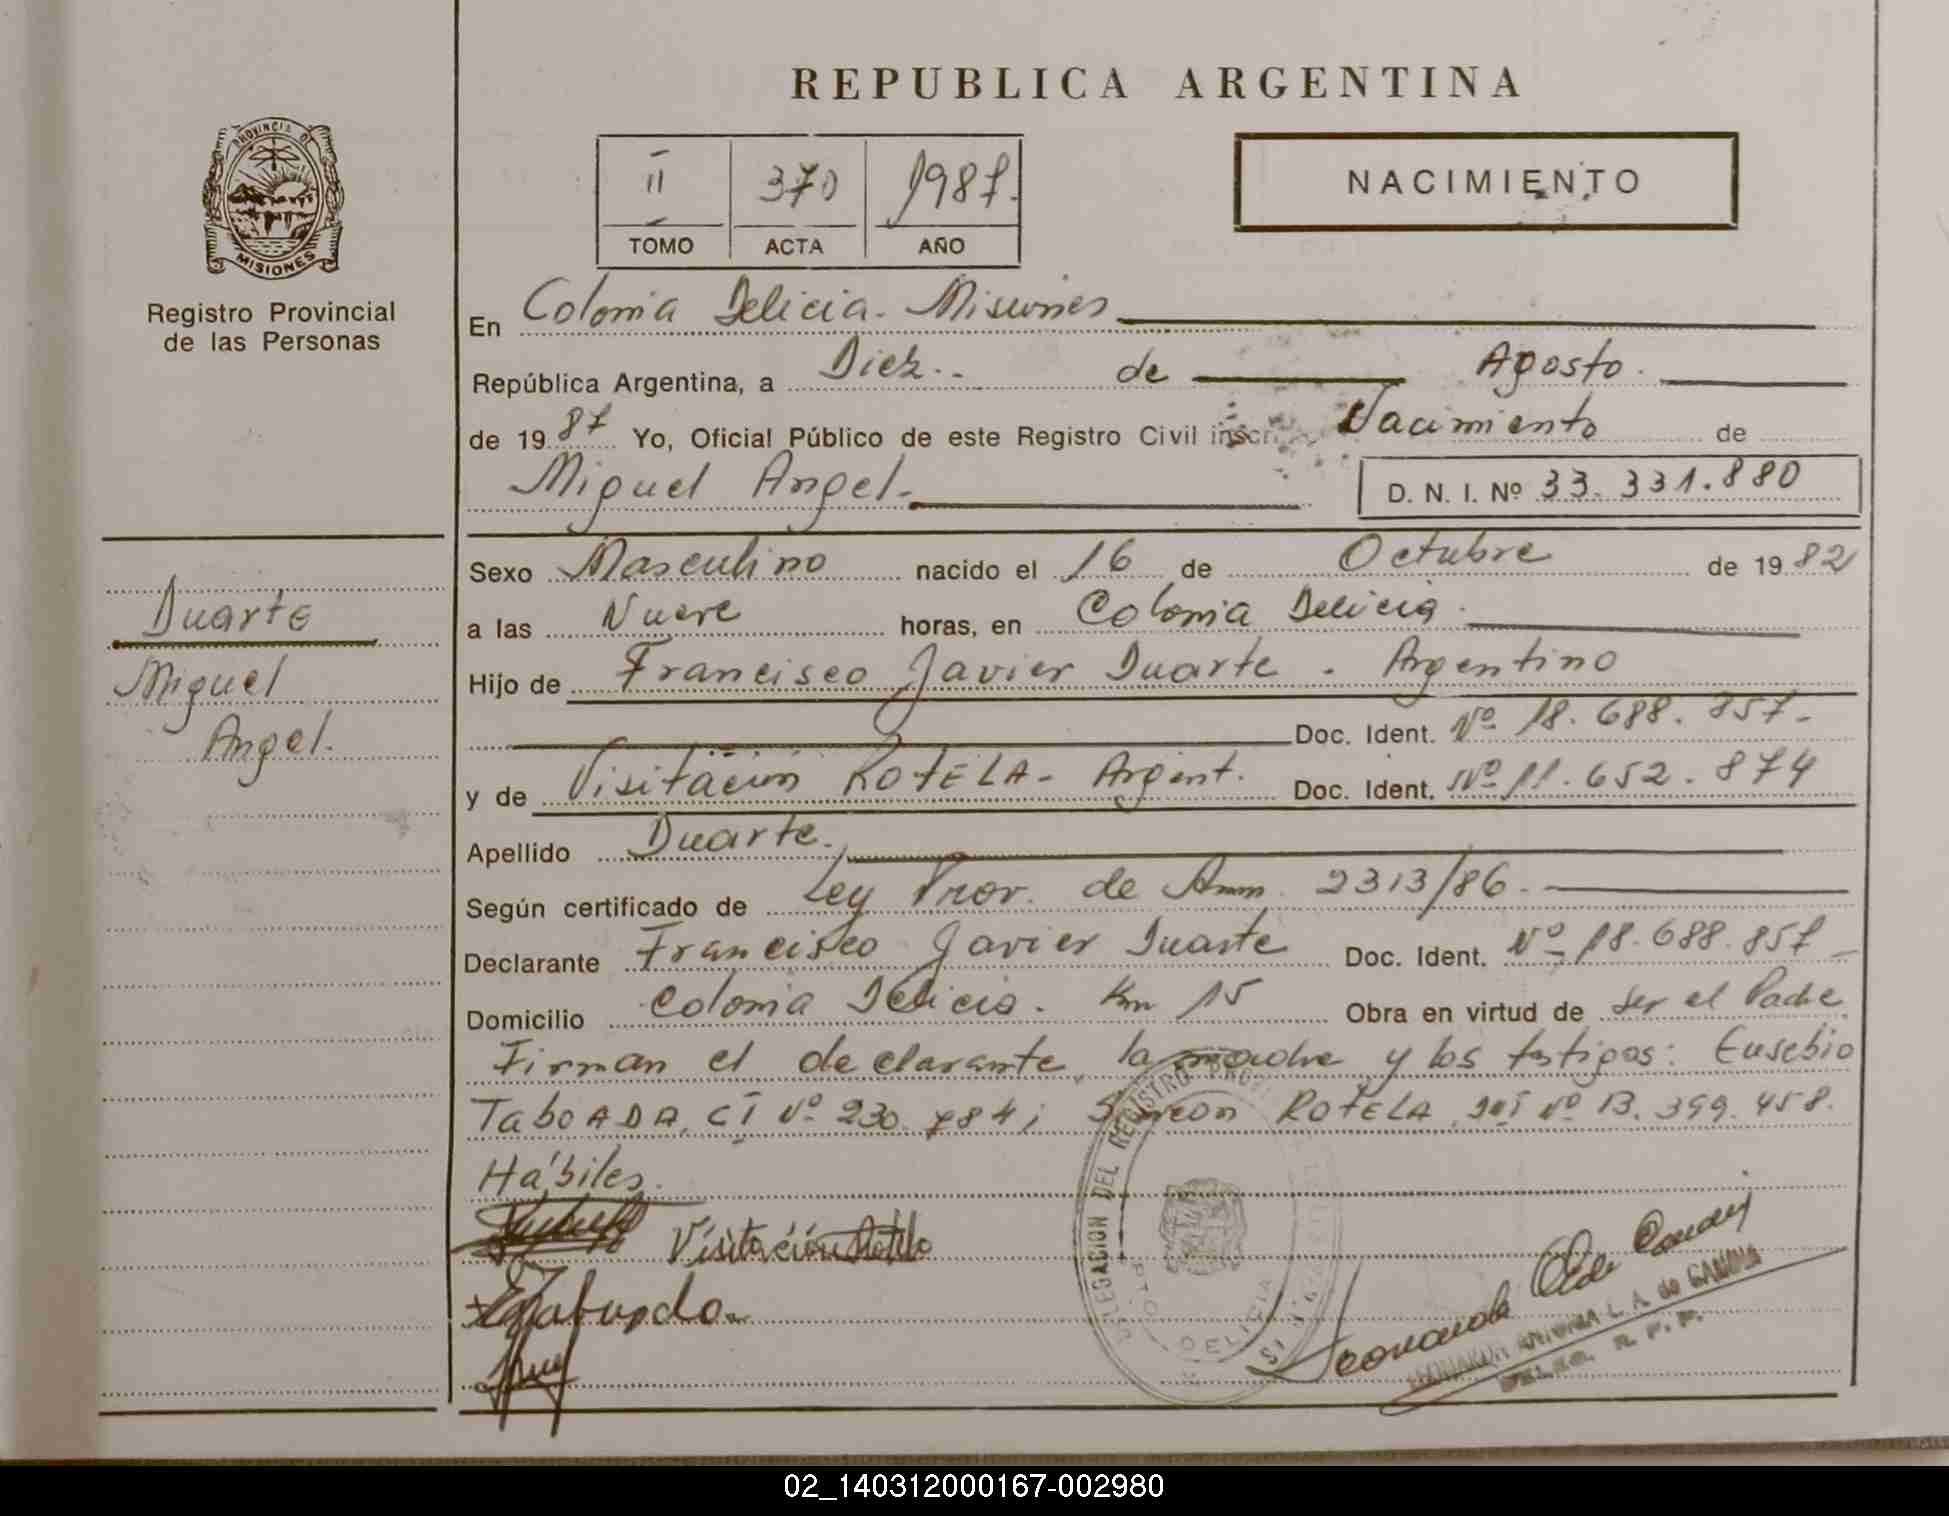 REPUBLICA ARGENTINA
PROVINCIA DE
MISIONES
Registro Provincial
de las Personas
II 370 1987.
TOMO ACTA AÑO
NACIMIENTO
En Colonia Delicia - Misiones
República Argentina, a Diez.. de Agosto.
de 1987 Yo, Oficial Público de este Registro Civil inscr Nacimiento de
Miguel Angel.- D. N. I. Nº 33.331.880
Sexo Masculino nacido el 16 de Octubre de 1982
a las Nueve horas, en Colonia Delicia.
Hijo de Francisco Javier Duarte . Argentino
Doc. Ident. Nº 18.688.857.-
y de Visitación ROTELA - Argent. Doc. Ident. Nº 11.652.874
Apellido Duarte.
Según certificado de Ley Prov. de Amn. 2313/86.
Declarante Francisco Javier Duarte Doc. Ident. Nº 18.688.857 -
Domicilio Colonia Delicia. Km 15 Obra en virtud de ser el Padre
Firman el declarante, la madre y los testigos: Eusebio
TaboADA, CI Nº 230.784; Simeon ROTELA, Nº 13.399.458.
Hábiles.
Visitación Rotela
Duarte
Miguel
Angel.
DELEGACION DEL REGISTRO PROV
PTO DELICIA
L. A. de GANDIA
R. P. P.
02_140312000167-002980